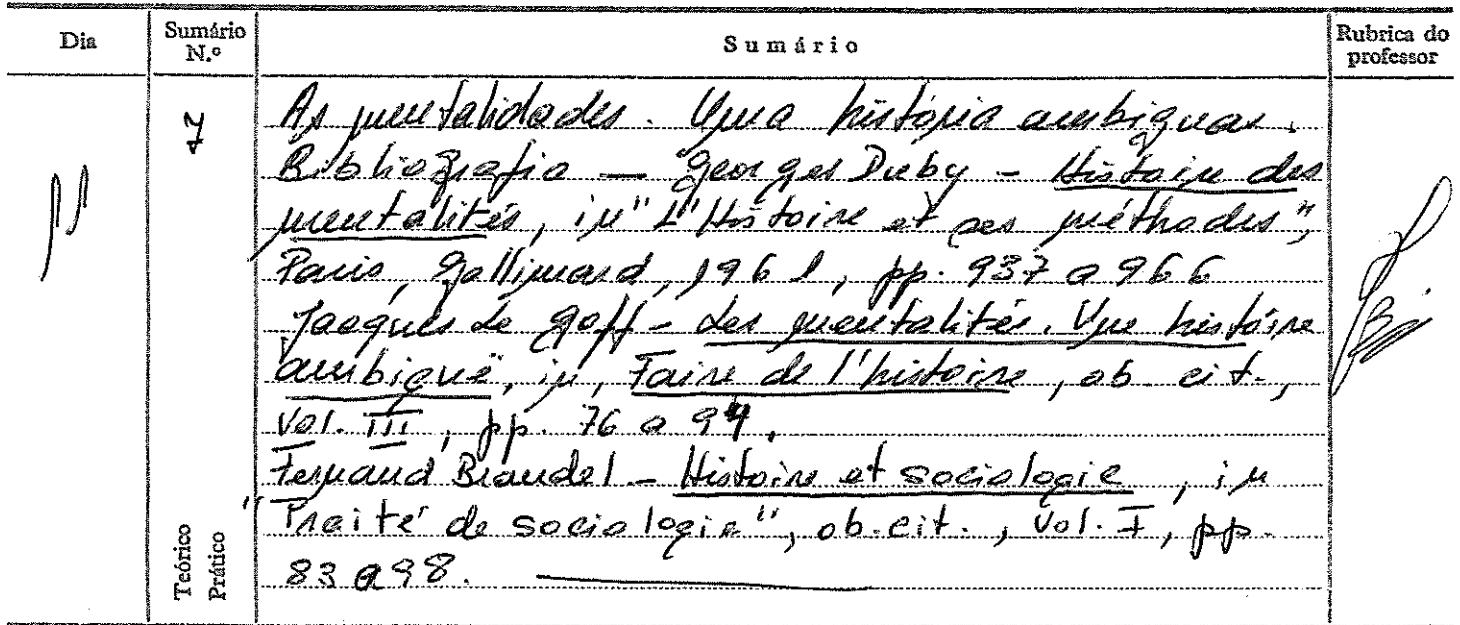 Dia
Sumário N.º
Sumário
Rubrica do professor
11
7
Teórico
Prático
As mentalidades. Uma história ambigua.
Bibliografia — Georges Duby - Histoire des
mentalités, in "L'Histoire et ses méthodes",
Paris, Gallimard, 1961, pp. 937 a 966
Jacques Le Goff - Les mentalités. Une histoire
ambiguë, in, Faire de l'histoire, ob. cit.,
Vol. III, pp. 76 a 94.
Fernand Braudel - Histoire et sociologie, in
"Traité de sociologie", ob. cit., Vol. I, pp.
83 a 98.